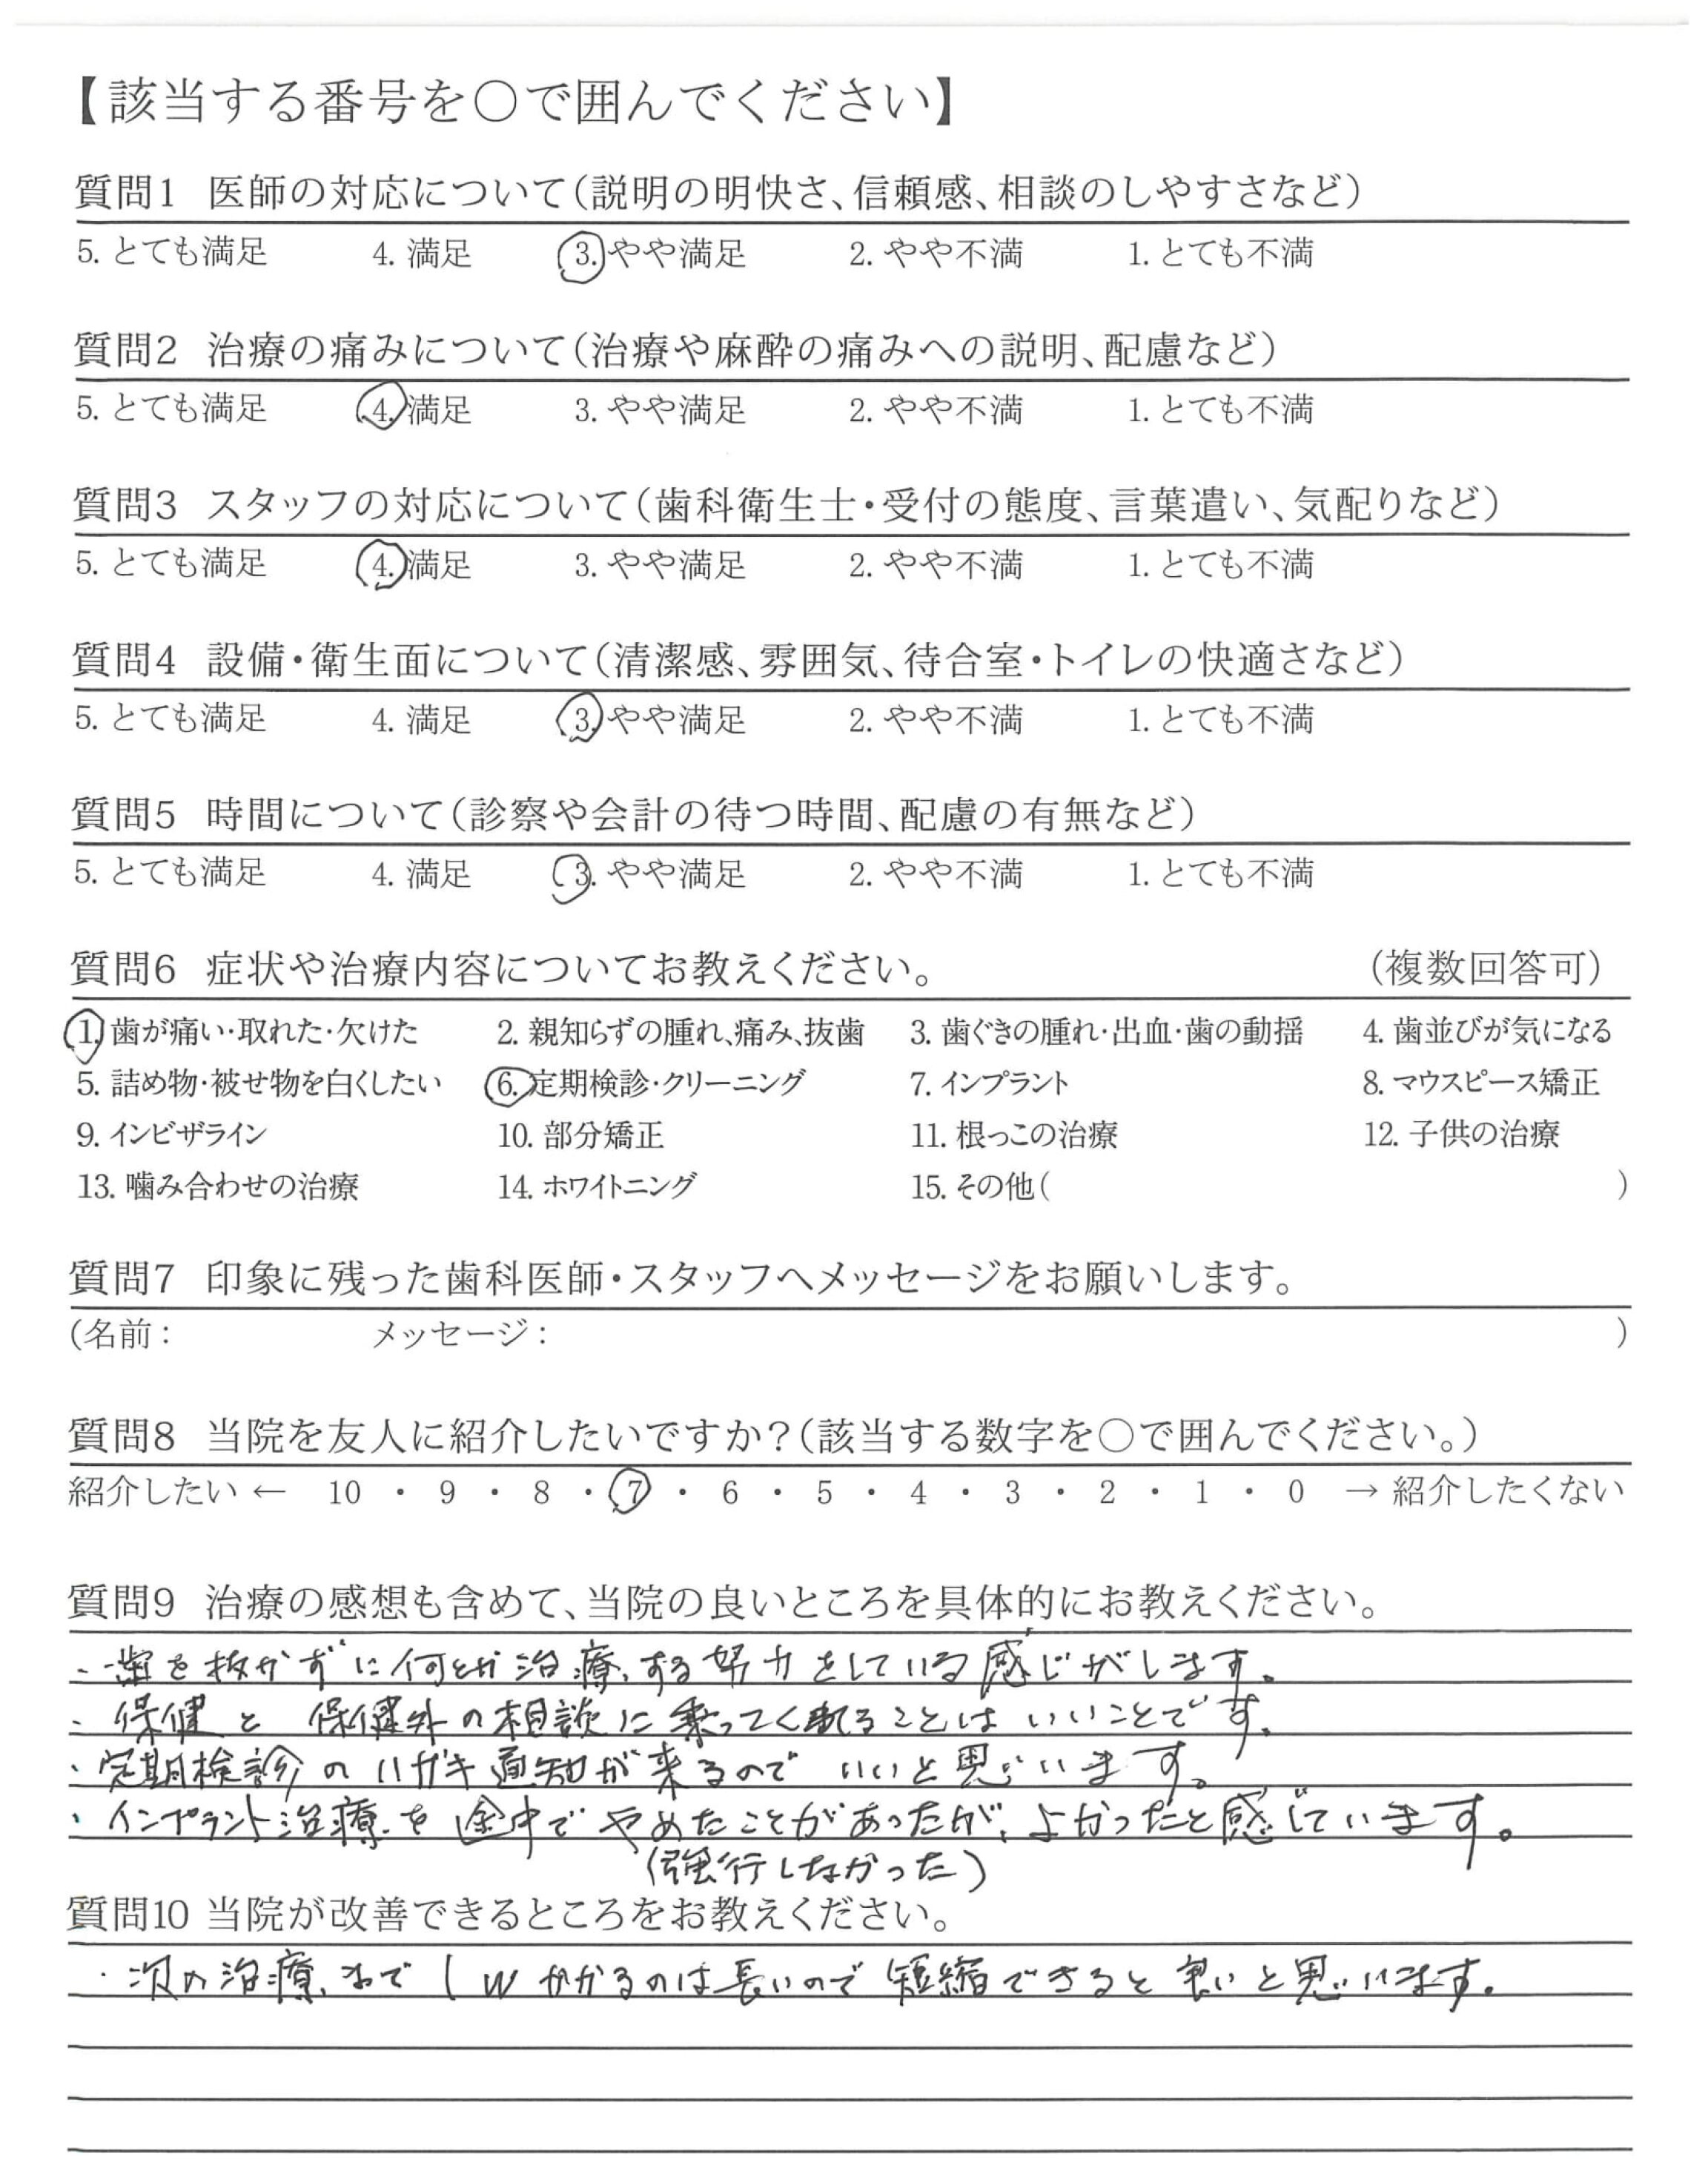 【該当する番号を〇で囲んでください】
質問1 医師の対応について(説明の明快さ、信頼感、相談のしやすさなど)
5. とても満足 4. 満足 3. やや満足 2. やや不満 1. とても不満
質問2 治療の痛みについて(治療や麻酔の痛みへの説明、配慮など)
5. とても満足 4. 満足 3. やや満足 2. やや不満 1. とても不満
質問3 スタッフの対応について(歯科衛生士・受付の態度、言葉遣い、気配りなど)
5. とても満足 4. 満足 3. やや満足 2. やや不満 1. とても不満
質問4 設備・衛生面について(清潔感、雰囲気、待合室・トイレの快適さなど)
5. とても満足 4. 満足 3. やや満足 2. やや不満 1. とても不満
質問5 時間について(診察や会計の待つ時間、配慮の有無など)
5. とても満足 4. 満足 3. やや満足 2. やや不満 1. とても不満
質問6 症状や治療内容についてお教えください。 (複数回答可)
1. 歯が痛い・取れた・欠けた 2. 親知らずの腫れ、痛み、抜歯 3. 歯ぐきの腫れ・出血・歯の動揺 4. 歯並びが気になる
5. 詰め物・被せ物を白くしたい 6. 定期検診・クリーニング 7. インプラント 8. マウスピース矯正
9. インビザライン 10. 部分矯正 11. 根っこの治療 12. 子供の治療
13. 噛み合わせの治療 14. ホワイトニング 15. その他( )
質問7 印象に残った歯科医師・スタッフへメッセージをお願いします。
(名前: メッセージ: )
質問8 当院を友人に紹介したいですか?(該当する数字を〇で囲んでください。)
紹介したい ← 10 ・ 9 ・ 8 ・ 7 ・ 6 ・ 5 ・ 4 ・ 3 ・ 2 ・ 1 ・ 0 → 紹介したくない
質問9 治療の感想も含めて、当院の良いところを具体的にお教えください。
・歯を抜かずに何とか治療する努力をしている感じがします。
・保健と保健外の相談に乗ってくれることはいいことです。
・定期検診のハガキ通知が来るのでいいと思います。
・インプラント治療を途中でやめたことがあったが、よかったと感じています。
(強行しなかった)
質問10 当院が改善できるところをお教えください。
・次の治療まで1Wかかるのは長いので短縮できると良いと思います。